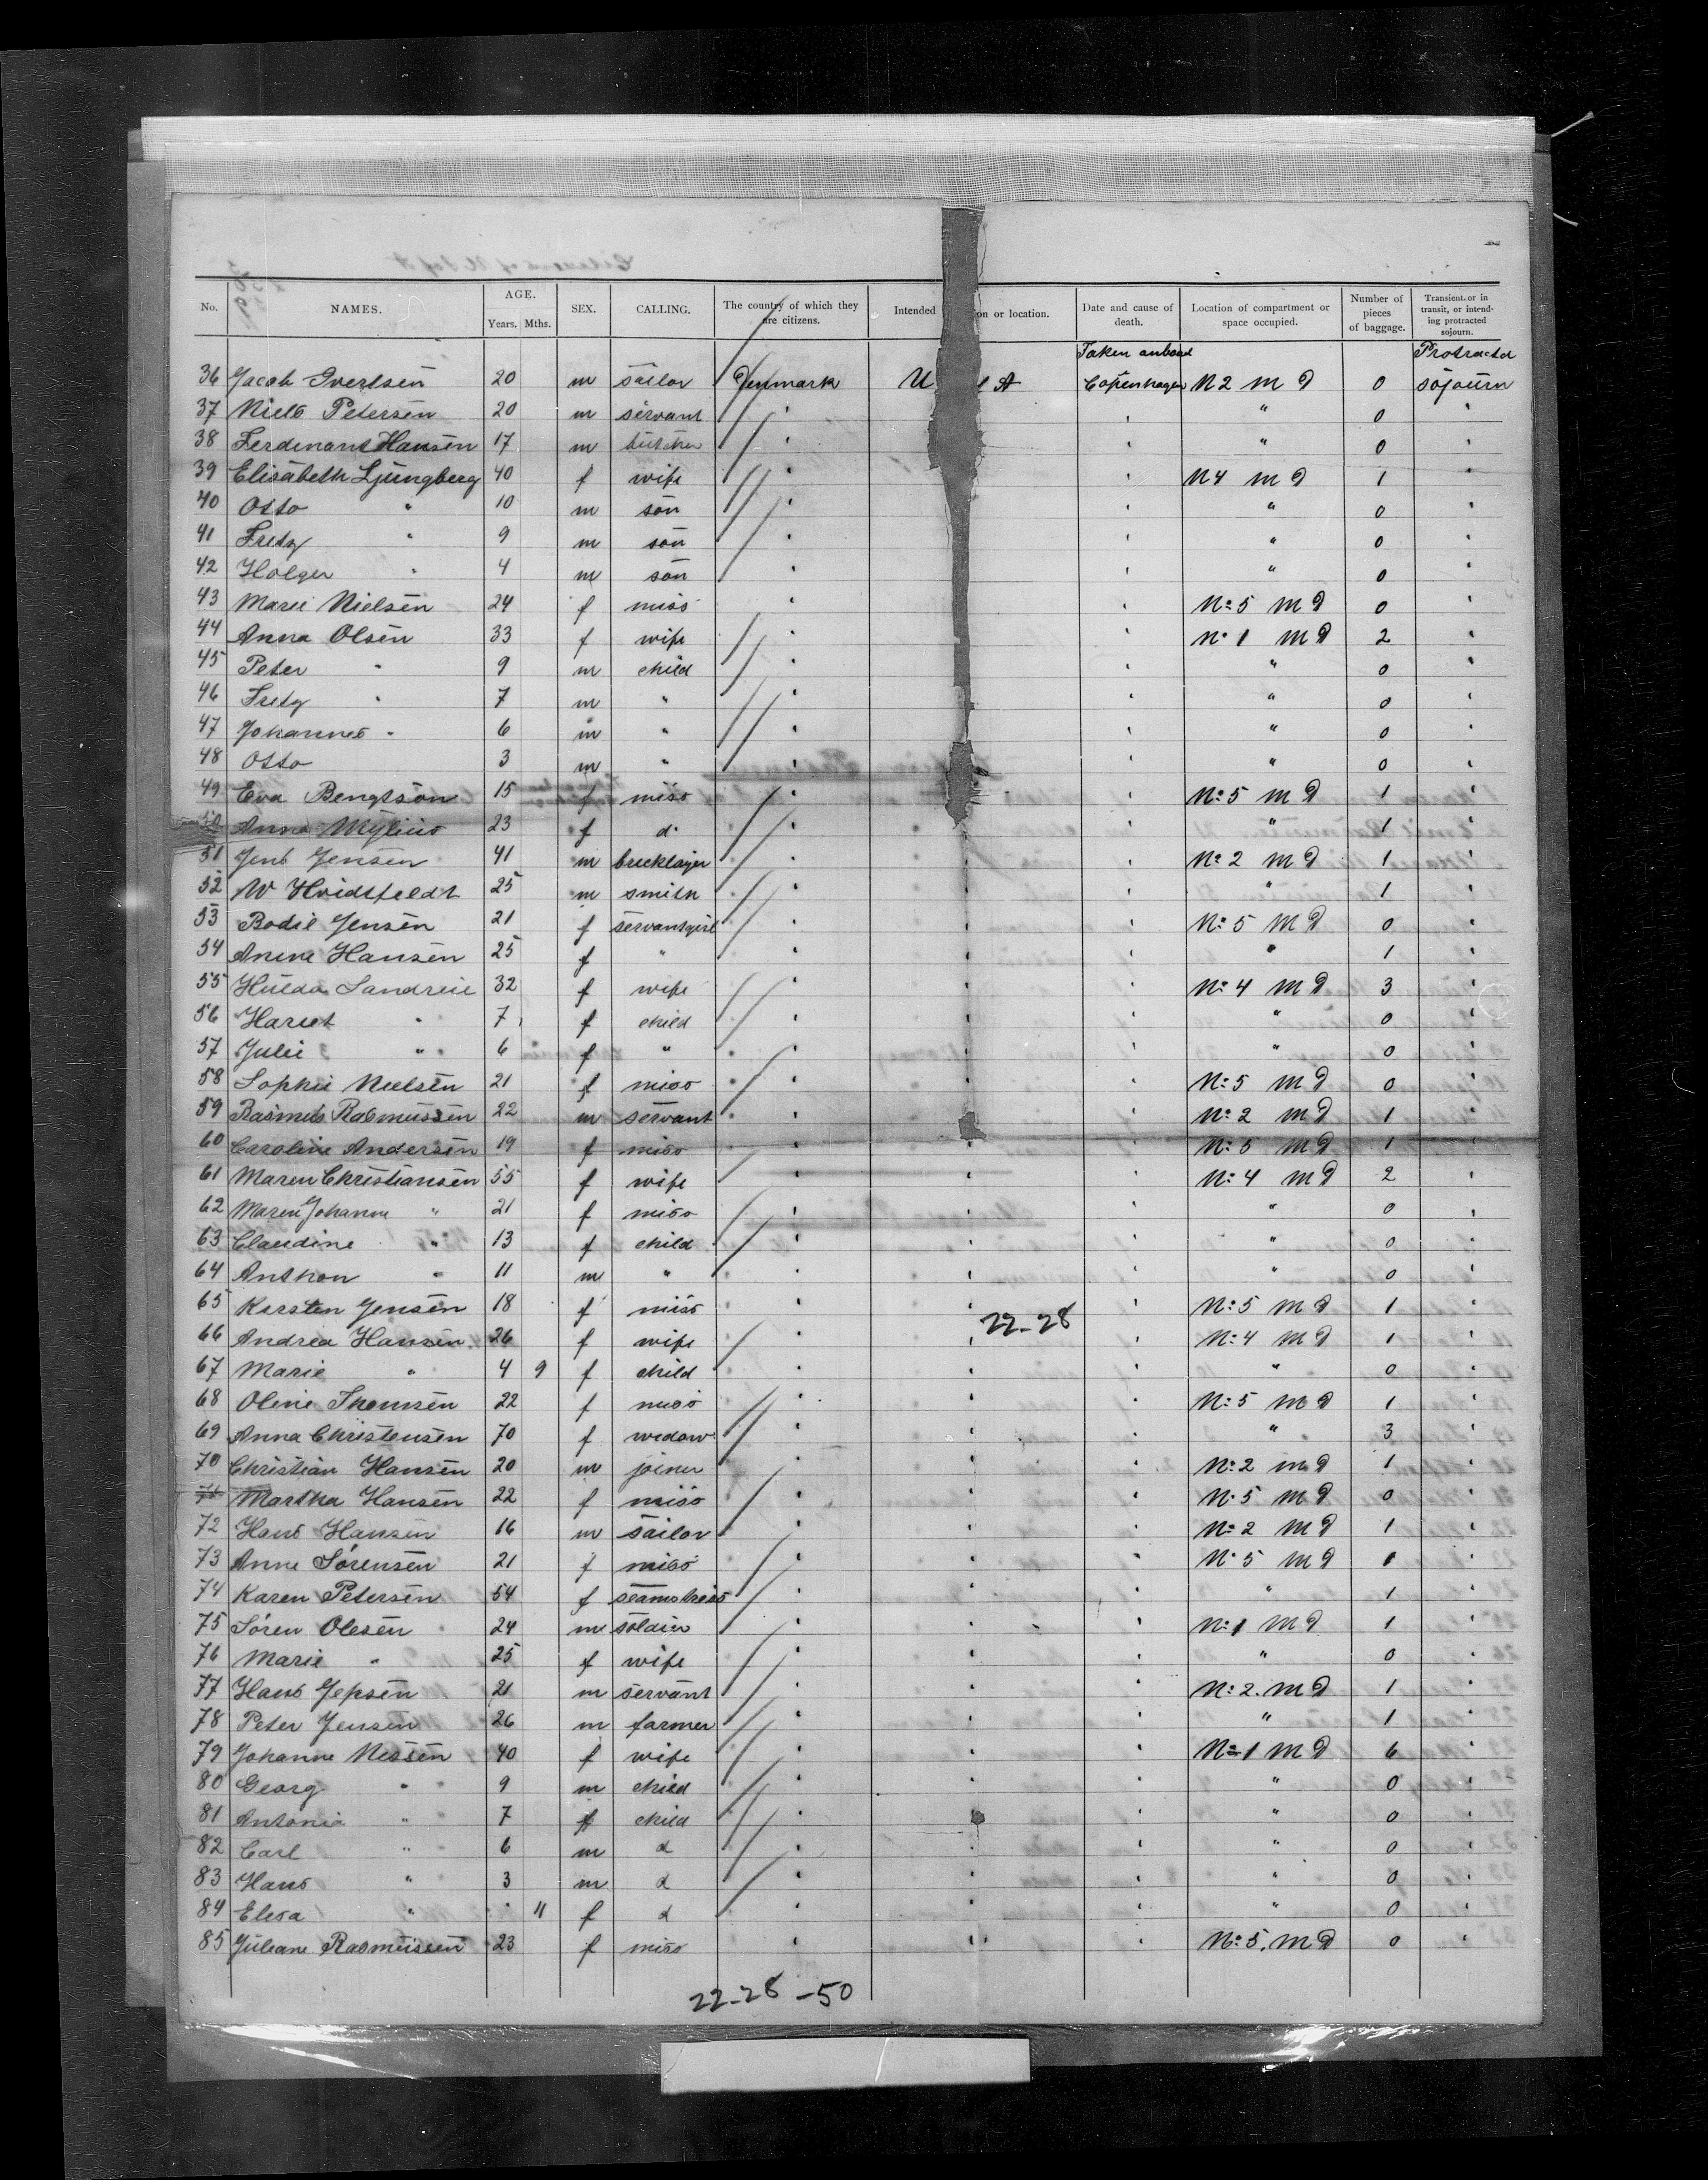 No. NAMES. AGE. Years. Mths. SEX. CALLING. The country of which they are citizens. Intended on or location. Date and cause of death. Location of compartment or space occupied. Number of pieces of baggage. Transient, or in transit, or intending protracted sojourn.
Taken onboard Protracted
36 Jacob Ivertsen 20 m sailor Denmark U A Copenhagen N2 m D 0 sojourn
37 Niels Petersen 20 m servant ' ' " 0 '
38 Ferdinant Hansen 17 m butcher ' ' " 0 '
39 Elisabeth Ljungberg 40 f wife ' ' N4 m D 1 '
40 Otto " 10 m son ' ' " 0 '
41 Fritz " 9 m son ' ' " 0 '
42 Holger " 4 m son ' ' " 0 '
43 Marie Nielsen 24 f miss ' ' No 5 m D 0 '
44 Anna Olsen 33 f wife ' ' No 1 m D 2 '
45 Peter " 9 m child ' ' " 0 '
46 Fritz " 7 m " ' ' " 0 '
47 Johannes " 6 m " ' ' " 0 '
48 Otto 3 m " ' ' " 0 '
49 Eva Bengtson 15 f miss ' ' No 5 m D 1 '
50 Anna Mylius 23 f do ' ' ' " 1 '
51 Jens Jensen 41 m bricklayer ' ' ' No 2 m D 1 '
52 W Hvidtfeldt 25 m smith ' ' ' " 1 '
53 Bodil Jensen 21 f servantgirl ' ' ' No 5 m D 0 '
54 Anine Hansen 25 f " ' ' ' " 1 '
55 Hulda 32 f wife ' ' ' No 4 m D 3 '
56 Hariet " 7 f child ' ' ' " 0 '
57 Julie " 6 f " ' ' ' " 0 '
58 Sophie Nielsen 21 f miss ' ' ' No 5 m D 0 '
59 Rasmus Rasmussen 22 m servant ' ' No 2 m D 1 '
60 Caroline Andersen 19 f miss ' ' ' No 5 m D 1 '
61 Maren Christiansen 55 f wife ' ' ' No 4 m D 2 '
62 Maren Johanne " 21 f miss ' ' ' " 0 '
63 Claudine " 13 f child ' ' ' " 0 '
64 Anthon " 11 m " ' ' ' " 0 '
65 Karsten Jensen 18 f miss ' ' ' No 5 m D 1 '
22-28
66 Andrea Hansen 26 f wife ' ' ' No 4 m D 1 '
67 Marie " 4 9 f child ' ' ' " 0 '
68 Oline Thomsen 22 f miss ' ' ' No 5 m D 1 '
69 Anna Christensen 70 f widow ' ' ' " 3 '
70 Christian Hansen 20 m joiner ' ' ' No 2 m D 1 '
71 Martha Hansen 22 f miss ' ' ' No 5 m D 0 '
72 Hans Hansen 16 m sailor ' ' ' No 2 m D 1 '
73 Anne Sörensen 21 f miss ' ' ' No 5 m D '
74 Karen Petersen 54 f seamstress ' ' ' " 1 '
75 Sören Olesen 24 m soldier ' ' ' No 1 m D 1 '
76 Marie " 25 f wife ' ' ' " 0 '
77 Hans Jepsen 21 m servant ' ' ' No 2 m D 1 '
78 Peter Jensen 26 m farmer ' ' ' " 1 '
79 Johanne Nissen 40 f wife ' ' ' No 1 m D 6 '
80 Georg " 9 m child ' ' ' " 0 '
81 Antonia " 7 f child ' ' " 0 '
82 Carl " 6 m d ' ' ' " 0 '
83 Hans " 3 m d ' ' ' " 0 '
84 Elisa " ' 11 f d ' ' ' " 0 '
85 Juliane Rasmussen 23 f miss ' ' ' No 5. m D 0 '
22-28 -50